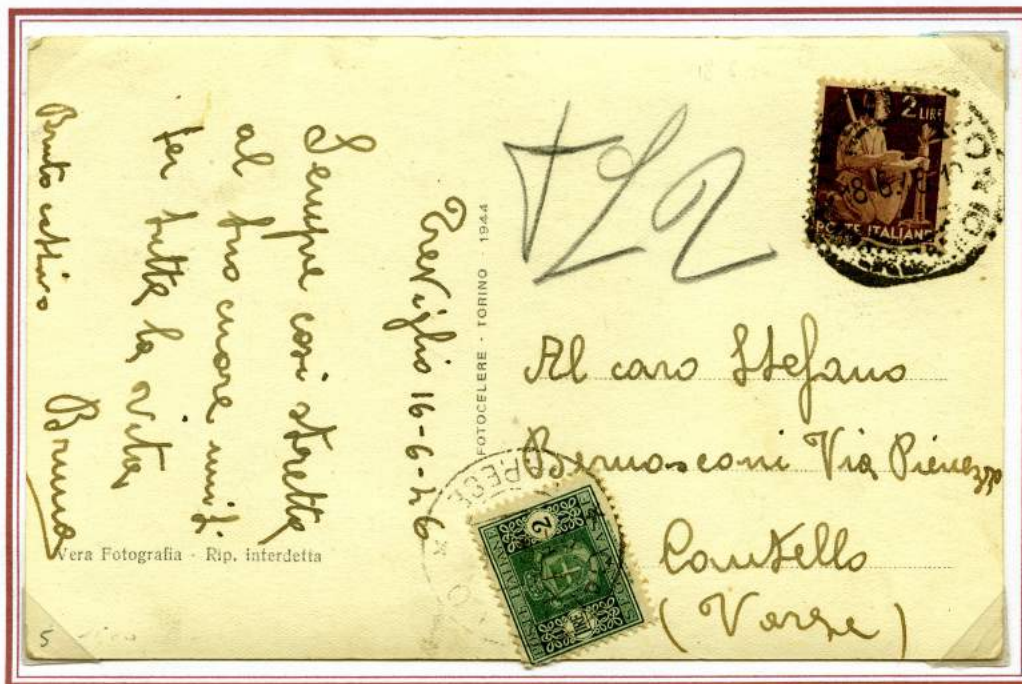 Treviglio 16-6-46
Sempre così stretta
al tuo cuore
per tutta la vita
Bruna
Vera Fotografia - Rip. interdetta
FOTOCELERE - TORINO - 1944
2 LIRE
POSTE ITALIANE
Al caro Stefano
Bernasconi Via
Cantello
(Varese)
2
5